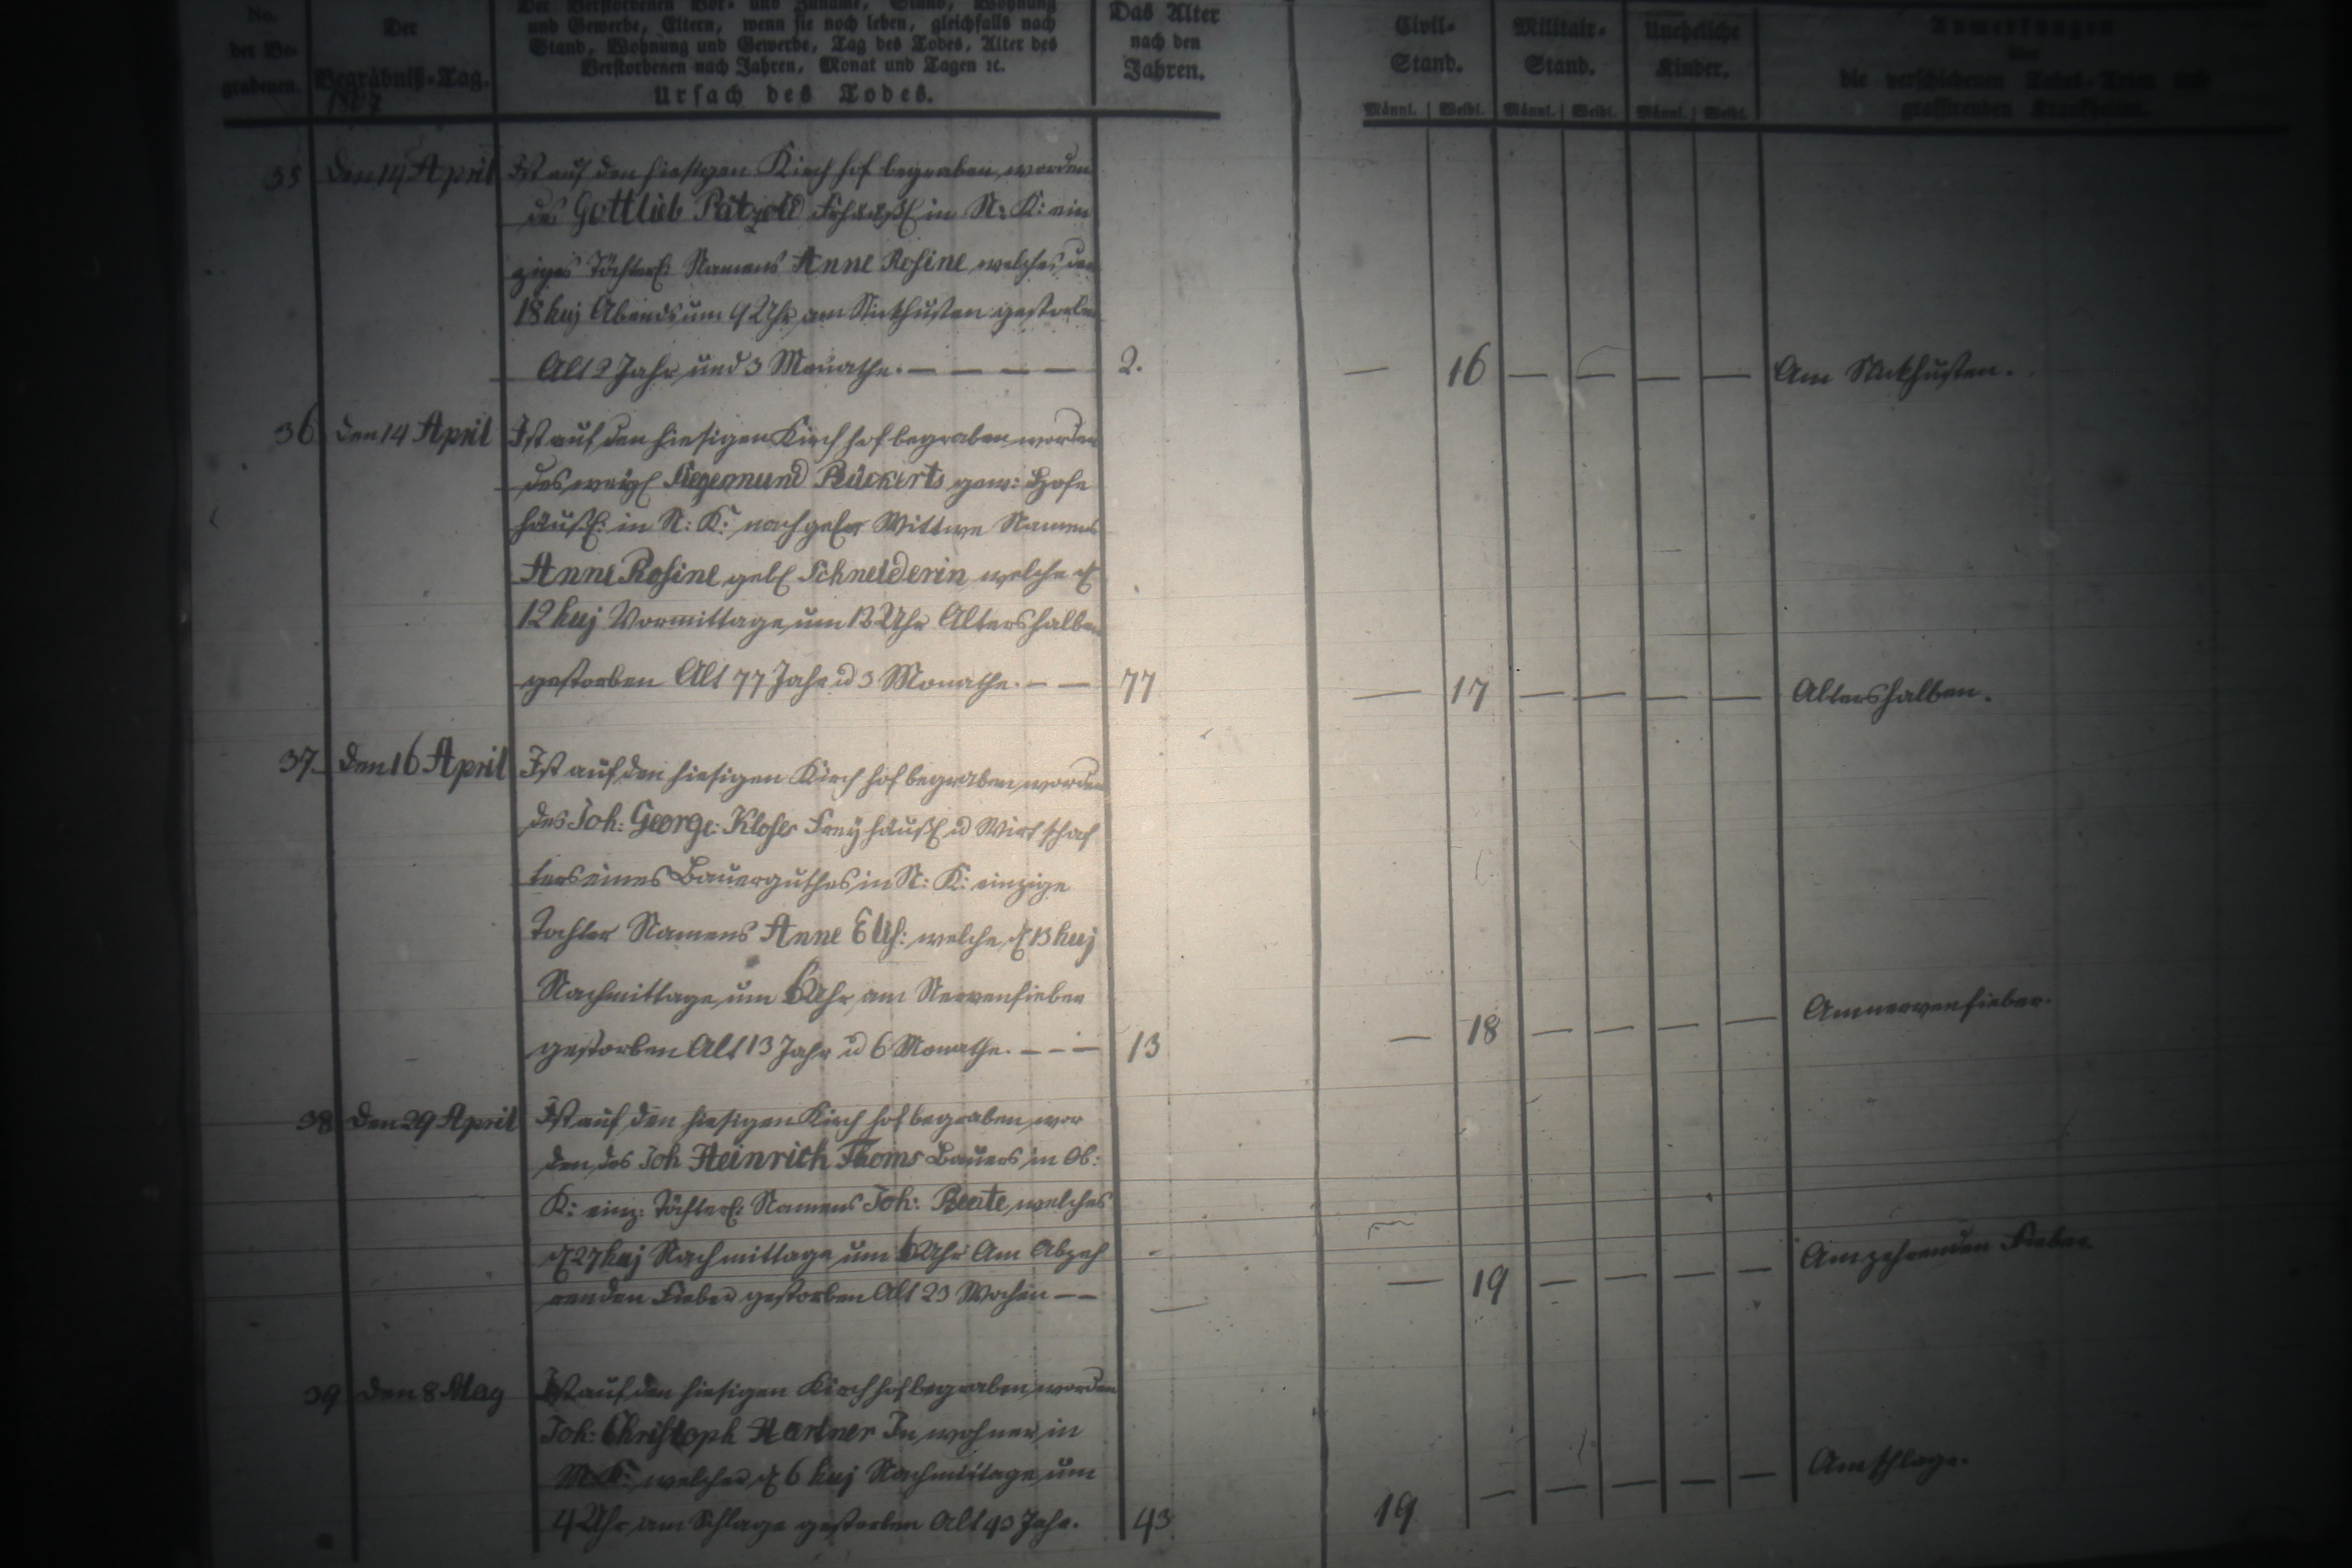 No.
der Be-
grabenen.
Der
Begräbniß-Tag.
Der Verstorbenen Vor- und Zuname, Stand, Wohnung
und Gewerbe, Eltern, wenn sie noch leben, gleichfalls nach
Stand, Wohnung und Gewerbe, Tag des Todes, Alter des
Verstorbenen nach Jahren, Monat und Tagen ꝛc.
Ursach des Todes.
Das Alter
nach den
Jahren.
Civil-
Stand.
Männl. Weibl.
Militair-
Stand.
Männl. Weibl.
Uneheliche
Kinder.
Männl. Weibl.
Anmerkungen
über
die verschiedenen Todes-Arten und
grassirenden Krankheiten.
35 den 14 April Ist auf den hiesigen Kirch hof begraben worden
des Gottlieb Pätzold in N: K: ein
ziges Töchterl: Namens Anne Rosine welches den
18 huj Abends um 9 Uhr am Stickhusten gestorben
Alt 2 Jahr und 3 Monathe. — — — — 2. — 16 — — — — Am Stickhusten.
36 den 14 April Ist auf den hiesigen Kirch hof begraben worden
des weyl Siegemund Rückerts gew: Hofe
häusl: in N: K: nachgel Wittwe Namens
Anne Rosine geb Schneiderin welche d
12 huj Vormittage um 12 Uhr Altershalben
gestorben Alt 77 Jahr u 3 Monathe. — — 77 — 17 — — — — Altershalben.
37. den 16 April Ist auf den hiesigen Kirch hof begraben worden
des Joh: George: Kloses Freyhäusl u Wirt schaf
ters eines Bauerguthes in N: K: einzige
Tochter Namens Anne Elis: welche d 13 huj
Nachmittage um 6 Uhr am Nervenfieber
gestorben Alt 13 Jahr u 6 Monathe. — — — 13 — 18 — — — — Am nervenfieber.
38 den 29 April Ist auf den hiesigen Kirch hof begraben wor
den des Joh Heinrich Thoms Bauers in Ob:
K: einz: Töchterl: Namens Joh: Beate welches
d 27 huj Nachmittage um 6 Uhr Am Abzeh
renden Fieber gestorben Alt 23 Wochen — — — — 19 — — — — Am zehrenden Fieber
39 den 8 May Ist auf den hiesigen Kirch hof begraben worden
Joh: Christoph Hartner In wohner in
M K: welcher d 6 huj Nachmittage um
4 Uhr am Schlage gestorben Alt 43 Jahr. 43 19 — — — — — Am schlage.